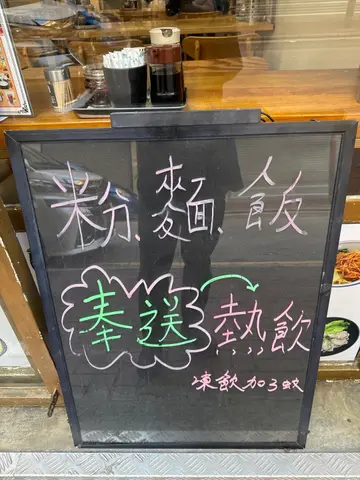 粉、麵、飯
奉送熱飲
凍飲加3蚊